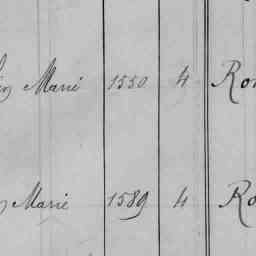 Marie 1550 4 Ro
Marie 1589 4 Ro